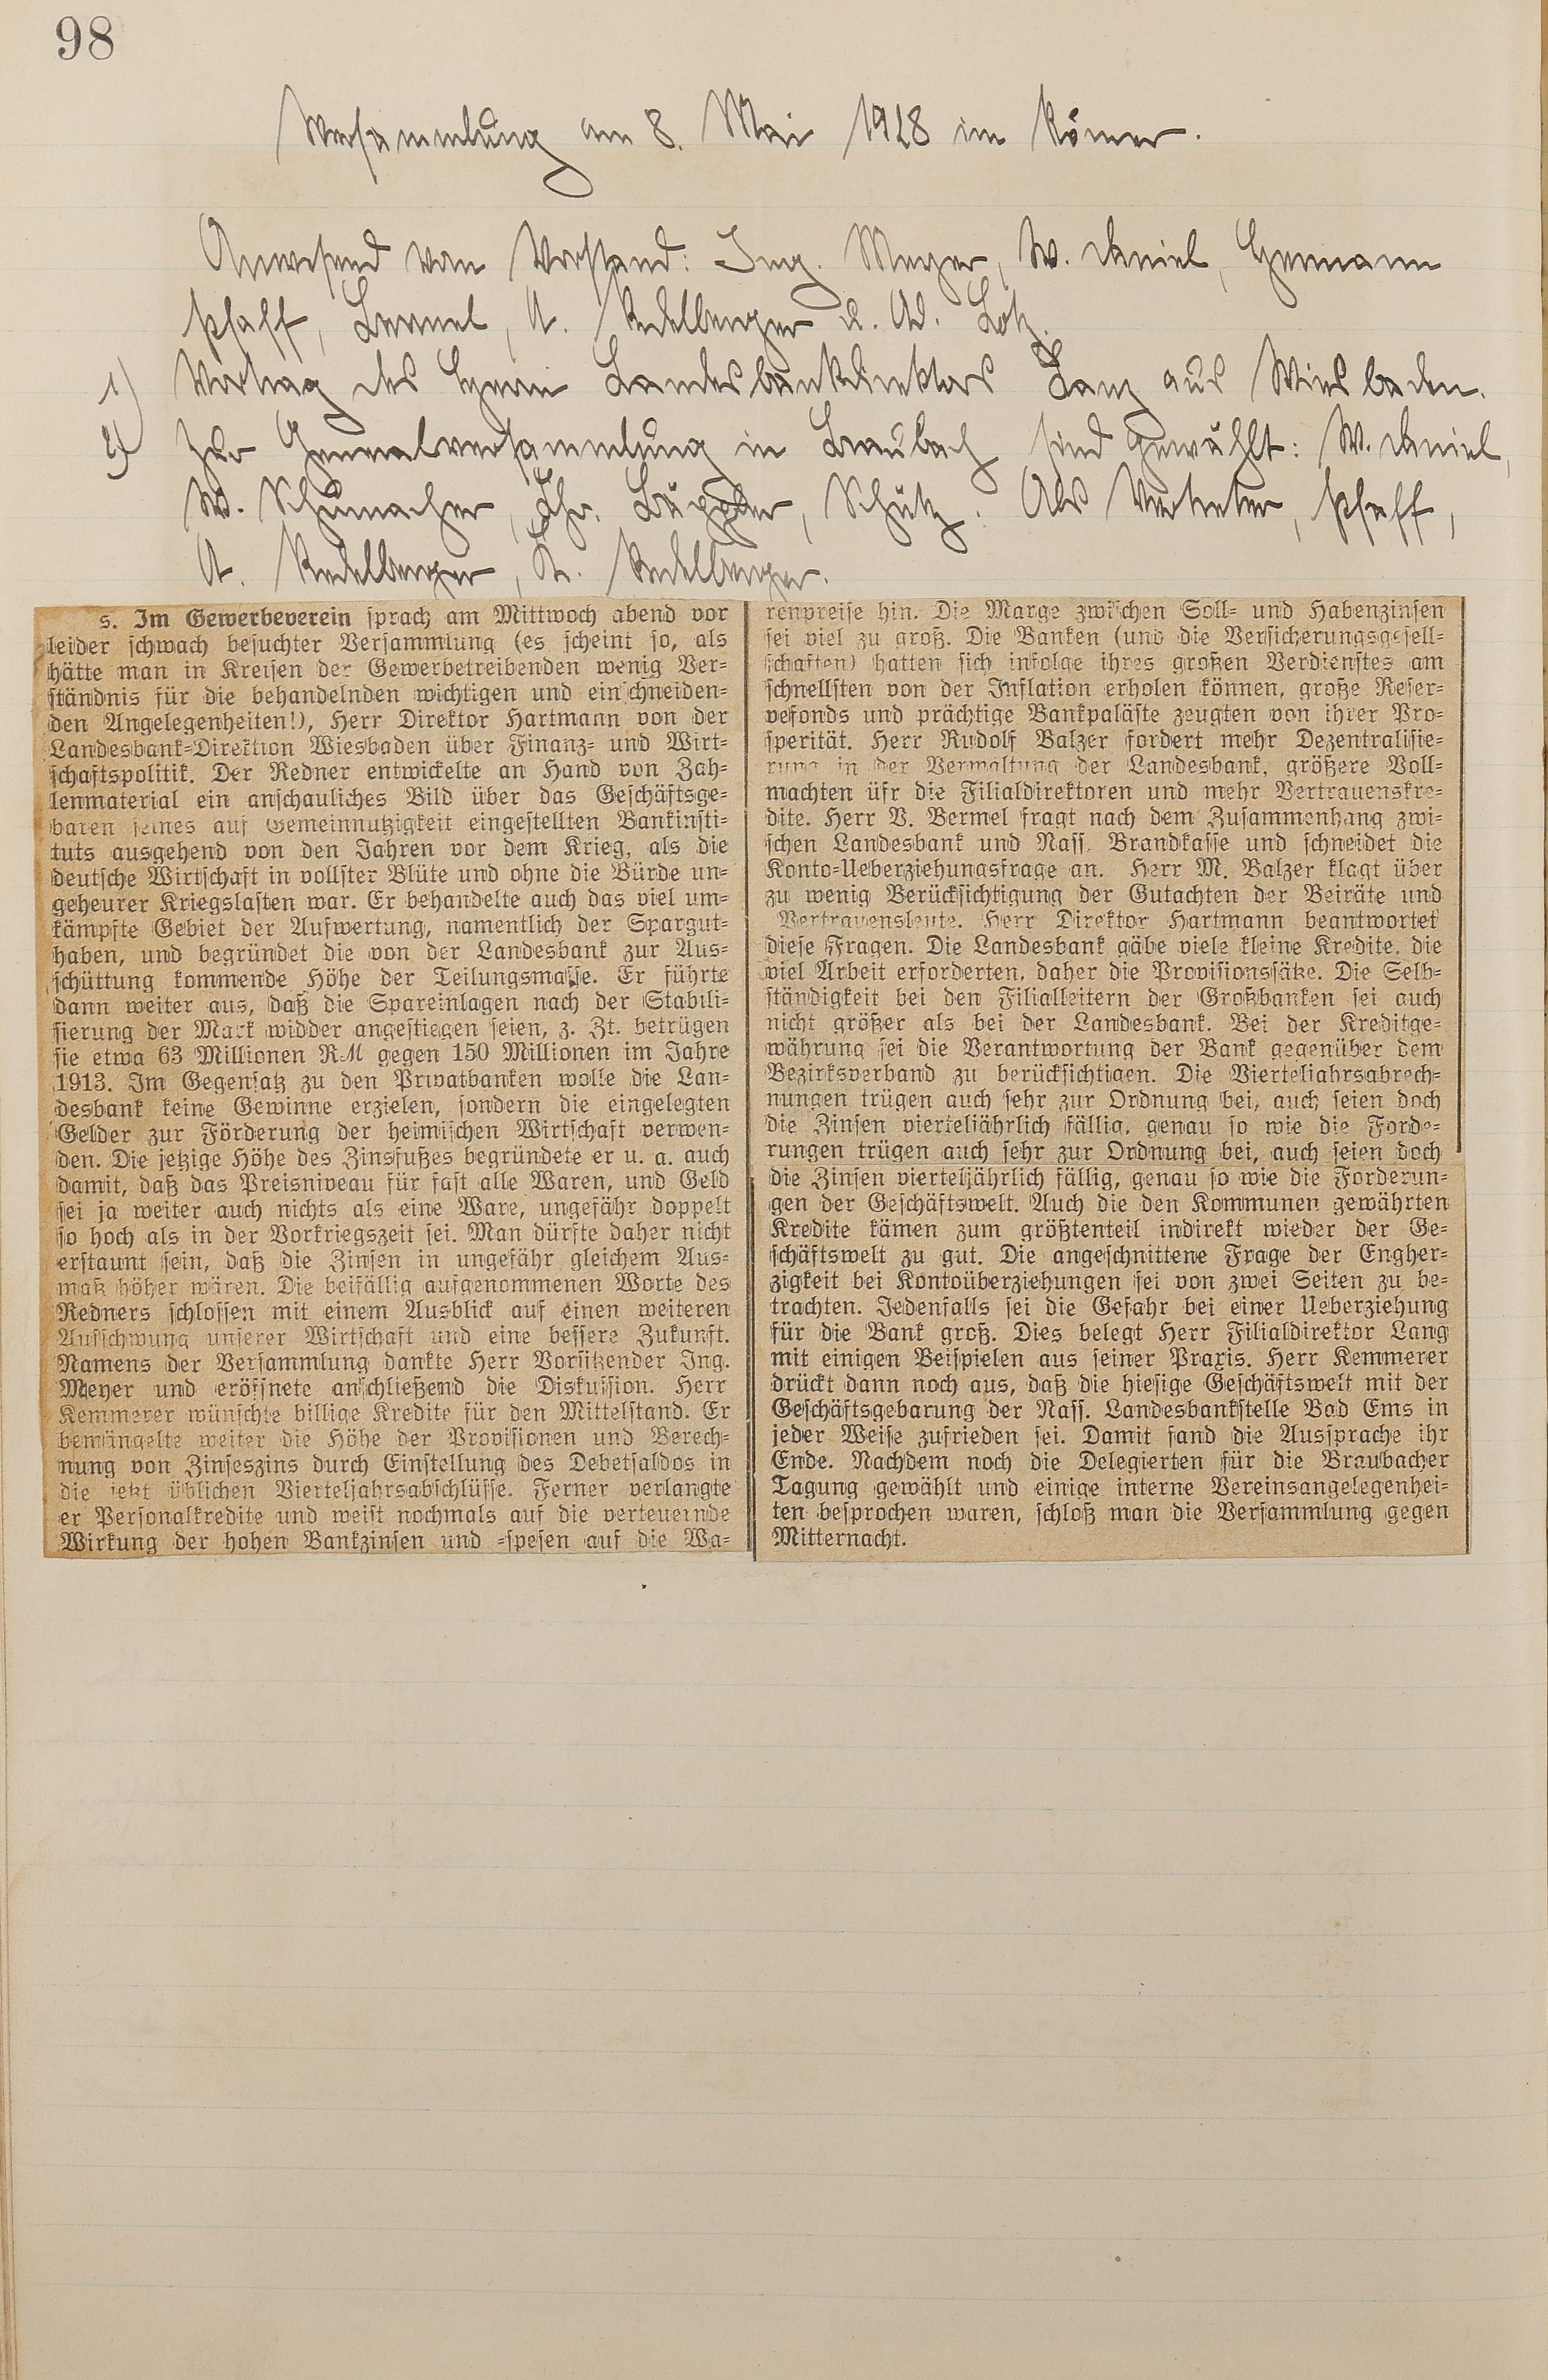 98
Versammlung am 8. Mai 1928 im Römer.
Anwesend vom Vorstand: Ing. Meyer, W. Daniel, Hermann
Pfaff, Bermel, A. Redelberger u. Ad. Lotz.
1) Vortrag des Herrn Landesbankdirektors Lang aus Wiesbaden.
2) Zur Generalversammlung in Braubach sind gewählt: W. Daniel,
W. Schumacher, Chr. Schütz. Als Vertreter, Pfaff,
A. Redelberger, K. Redelberger.
s. Im Gewerbeverein sprach am Mittwoch abend vor
leider schwach besuchter Versammlung (es scheint so, als
hätte man in Kreisen der Gewerbetreibenden wenig Ver-
ständnis für die behandelnden wichtigen und einschneiden-
den Angelegenheiten!), Herr Direktor Hartmann von der
Landesbank-Direktion Wiesbaden über Finanz- und Wirt-
schaftspolitik. Der Redner entwickelte an Hand von Zah-
lenmaterial ein anschauliches Bild über das Geschäftsge-
baren seines auf Gemeinnutzigkeit eingestellten Bankinsti-
tuts ausgehend von den Jahren vor dem Krieg, als die
deutsche Wirtschaft in vollster Blüte und ohne die Bürde un-
geheurer Kriegslasten war. Er behandelte auch das viel um-
kämpfte Gebiet der Aufwertung, namentlich der Spargut-
haben, und begründet die von der Landesbank zur Aus-
schüttung kommende Höhe der Teilungsmasse. Er führte
dann weiter aus, daß die Spareinlagen nach der Stabili-
sierung der Mark widder angestiegen seien, z. Zt. betrügen
sie etwa 63 Millionen RM gegen 150 Millionen im Jahre
1913. Im Gegensatz zu den Privatbanken wolle die Lan-
desbank keine Gewinne erzielen, sondern die eingelegten
Gelder zur Förderung der heimischen Wirtschaft verwen-
den. Die jetzige Höhe des Zinsfußes begründete er u. a. auch
damit, daß das Preisniveau für fast alle Waren, und Geld
sei ja weiter auch nichts als eine Ware, ungefähr doppelt
so hoch als in der Vorkriegszeit sei. Man dürfte daher nicht
erstaunt sein, daß die Zinsen in ungefähr gleichem Aus-
maß höher wären. Die beifällig aufgenommenen Worte des
Redners schlossen mit einem Ausblick auf einen weiteren
Aufschwung unserer Wirtschaft und eine bessere Zukunft.
Namens der Versammlung dankte Herr Vorsitzender Ing.
Meyer und eröffnete anschließend die Diskussion. Herr
Kemmerer wünschte billige Kredite für den Mittelstand. Er
bemängelte weiter die Höhe der Provisionen und Berech-
nung von Zinseszins durch Einstellung des Debetsaldos in
die jetzt üblichen Vierteljahrsabschlüsse. Ferner verlangte
er Personalkredite und weist nochmals auf die verteuernde
Wirkung der hohen Bankzinsen und -spesen auf die Wa-
renpreise hin. Die Marge zwischen Soll- und Habenzinsen
sei viel zu groß. Die Banken (und die Versicherungsgesell-
schaften) hatten sich infolge ihres großen Verdienstes am
schnellsten von der Inflation erholen können, große Reser-
vefonds und prächtige Bankpaläste zeugten von ihrer Pro-
sperität. Herr Rudolf Balzer fordert mehr Dezentralisie-
rung in der Verwaltung der Landesbank, größere Voll-
machten üfr die Filialdirektoren und mehr Vertrauenskre-
dite. Herr V. Bermel fragt nach dem Zusammenhang zwi-
schen Landesbank und Nass. Brandkasse und schneidet die
Konto-Ueberziehungsfrage an. Herr M. Balzer klagt über
zu wenig Berücksichtigung der Gutachten der Beiräte und
Vertrauensleute. Herr Direktor Hartmann beantwortet
diese Fragen. Die Landesbank gäbe viele kleine Kredite, die
viel Arbeit erforderten, daher die Provisionssätze. Die Selb-
ständigkeit bei den Filialleitern der Großbanken sei auch
nicht größer als bei der Landesbank. Bei der Kreditge-
währung sei die Verantwortung der Bank gegenüber dem
Bezirksverband zu berücksichtigen. Die Vierteljahrsabrech-
nungen trügen auch sehr zur Ordnung bei, auch seien doch
die Zinsen vierteljährlich fällig, genau so wie die Forde-
rungen trügen auch sehr zur Ordnung bei, auch seien doch
die Zinsen vierteljährlich fällig, genau so wie die Forderun-
gen der Geschäftswelt. Auch die den Kommunen gewährten
Kredite kämen zum größtenteil indirekt wieder der Ge-
schäftswelt zu gut. Die angeschnittene Frage der Engher-
zigkeit bei Kontoüberziehungen sei von zwei Seiten zu be-
trachten. Jedenfalls sei die Gefahr bei einer Ueberziehung
für die Bank groß. Dies belegt Herr Filialdirektor Lang
mit einigen Beispielen aus seiner Praxis. Herr Kemmerer
drückt dann noch aus, daß die hiesige Geschäftswelt mit der
Geschäftsgebarung der Nass. Landesbankstelle Bad Ems in
jeder Weise zufrieden sei. Damit fand die Aussprache ihr
Ende. Nachdem noch die Delegierten für die Braubacher
Tagung gewählt und einige interne Vereinsangelegenhei-
ten besprochen waren, schloß man die Versammlung gegen
Mitternacht.